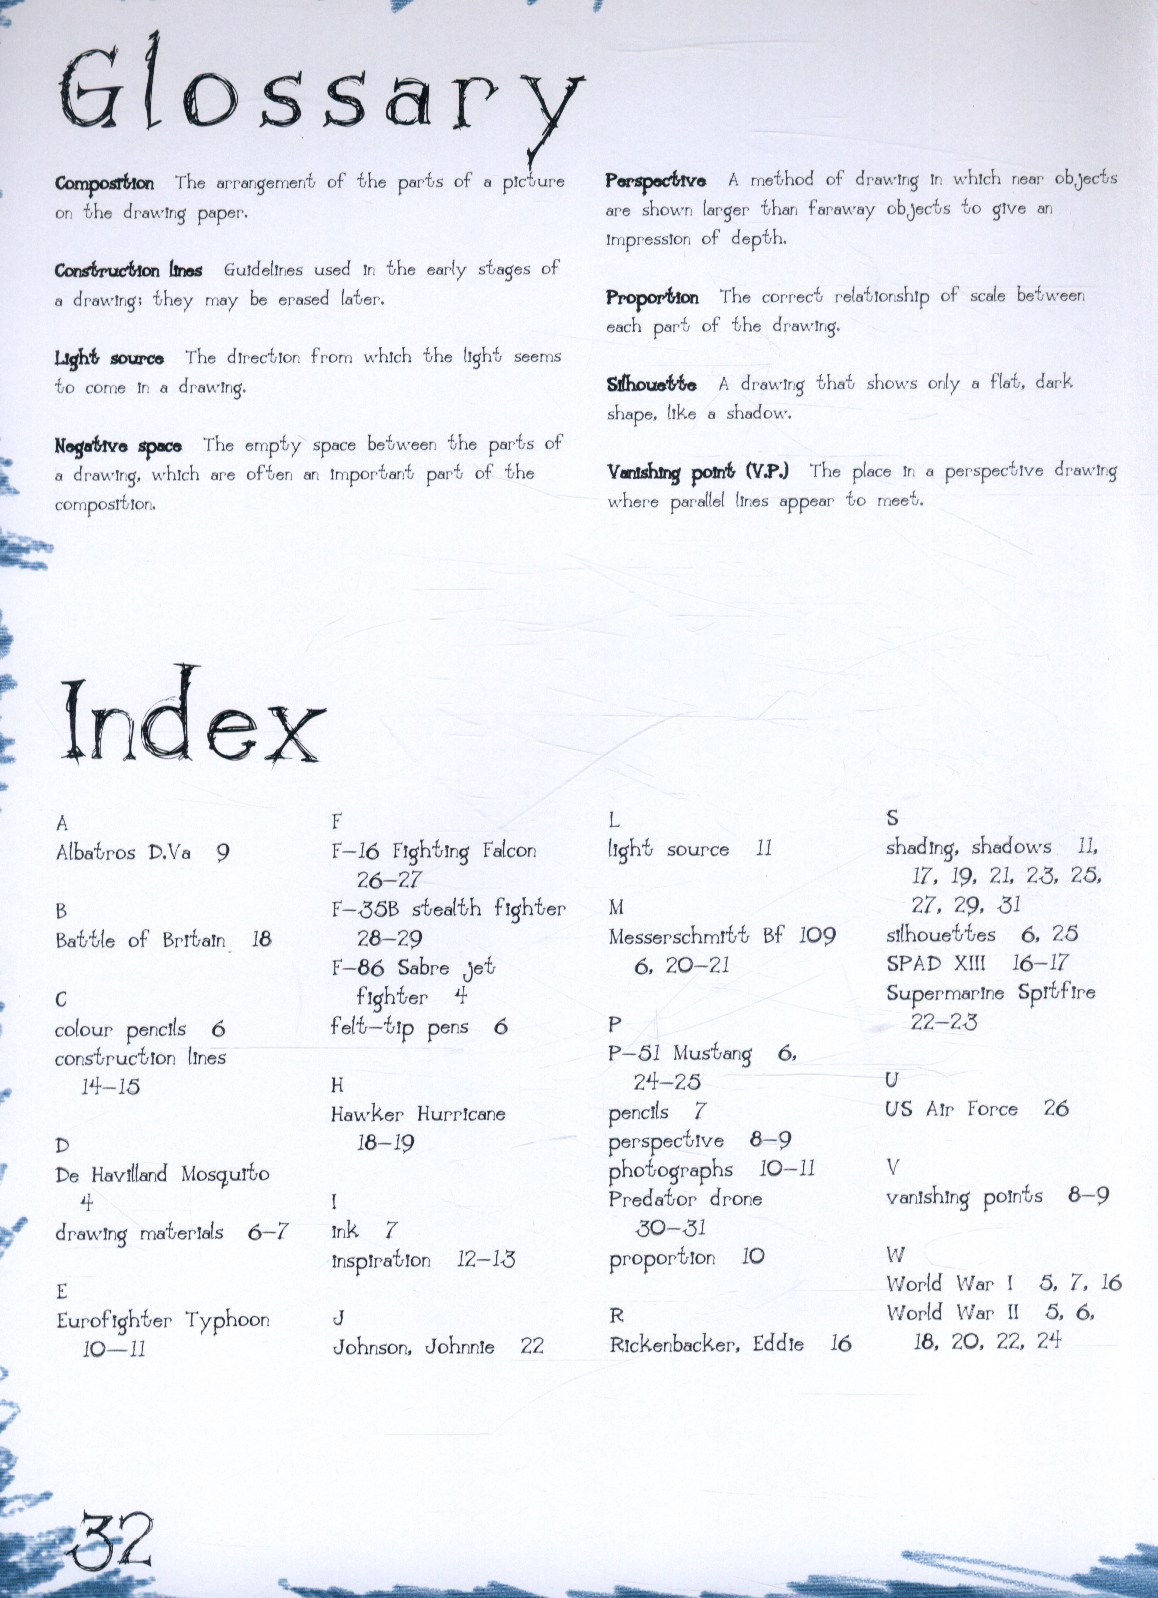 Glossary
Composition The arrangement of the parts of a picture
on the drawing paper.
Construction lines Guidelines used in the early stages of
a drawing; they may be erased later.
Light source The direction from which the light seems
to come in a drawing.
Negative space The empty space between the parts of
a drawing, which are often an important part of the
composition.
Perspective A method of drawing in which near objects
are shown larger than faraway objects to give an
impression of depth.
Proportion The correct relationship of scale between
each part of the drawing.
Silhouette A drawing that shows only a flat, dark
shape, like a shadow.
Vanishing point (V.P.) The place in a perspective drawing
where parallel lines appear to meet.
Index
A
Albatros D.Va 9
B
Battle of Britain 18
C
colour pencils 6
construction lines
14–15
D
De Havilland Mosquito
4
drawing materials 6–7
E
Eurofighter Typhoon
10—11
F
F–16 Fighting Falcon
26–27
F–35B stealth fighter
28–29
F–86 Sabre jet
fighter 4
felt–tip pens 6
H
Hawker Hurricane
18–19
I
ink 7
inspiration 12–13
J
Johnson, Johnnie 22
L
light source 11
M
Messerschmitt Bf 109
6, 20–21
P
P–51 Mustang 6,
24–25
pencils 7
perspective 8–9
photographs 10–11
Predator drone
30–31
proportion 10
R
Rickenbacker, Eddie 16
S
shading, shadows 11,
17, 19, 21, 23, 25,
27, 29, 31
silhouettes 6, 25
SPAD XIII 16–17
Supermarine Spitfire
22–23
U
US Air Force 26
V
vanishing points 8–9
W
World War I 5, 7, 16
World War II 5, 6,
18, 20, 22, 24
32